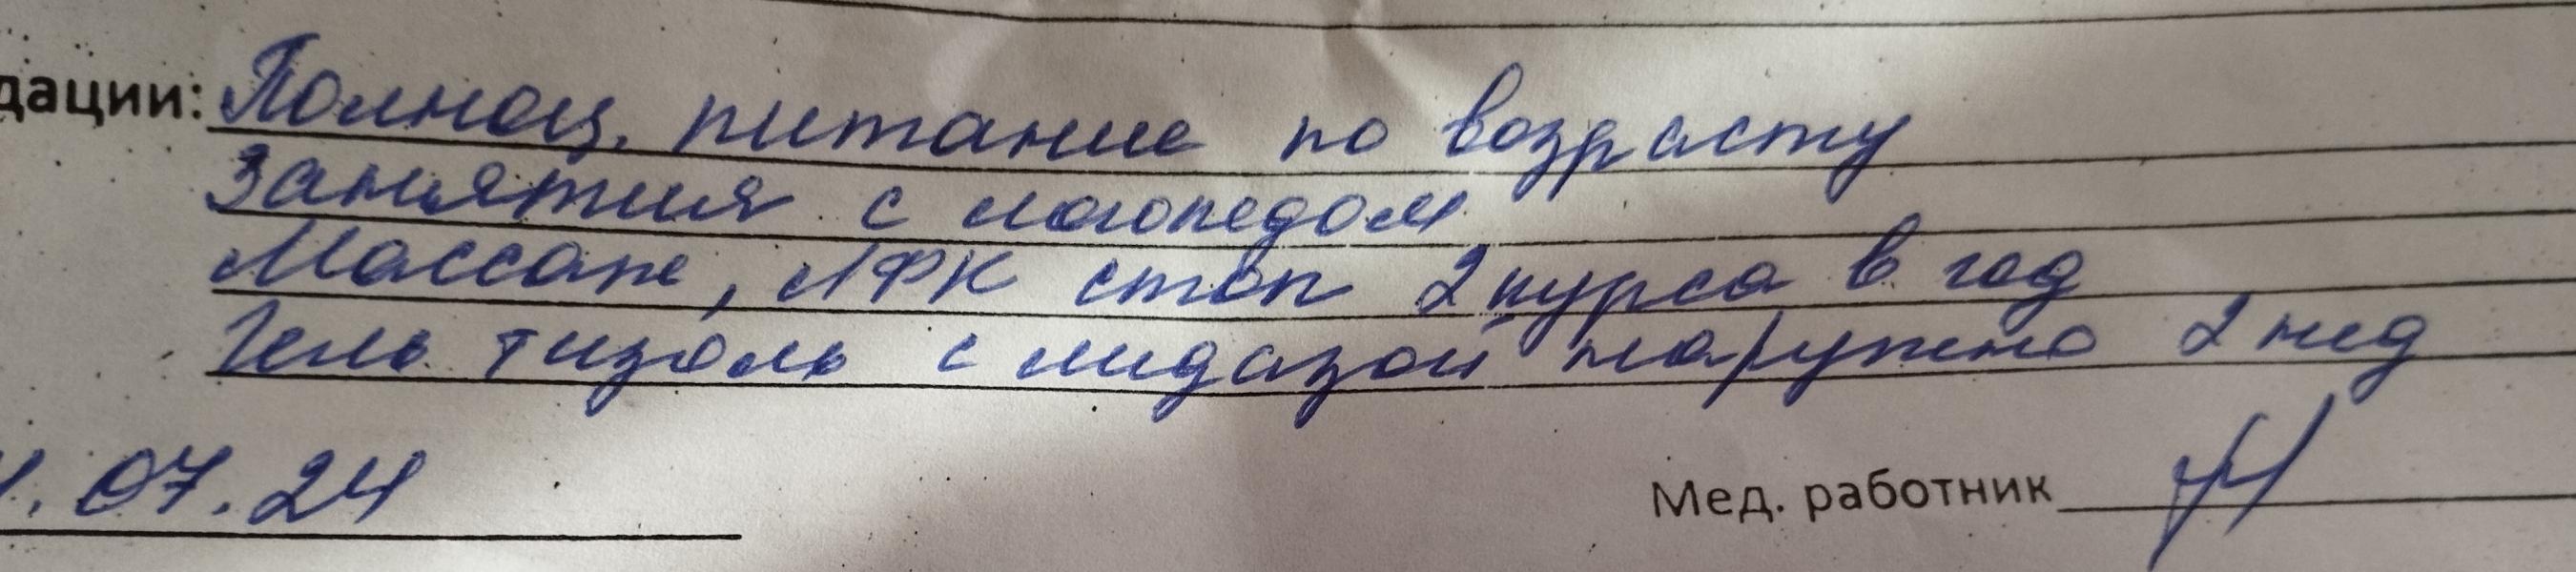 дации: Полноц. питание по возрасту
Занятия с логопедом
Массаж, ЛФК стоп 2 курса в год
Гель тизоль с лидазой наружно 2 нед
.07.24
Мед. работник